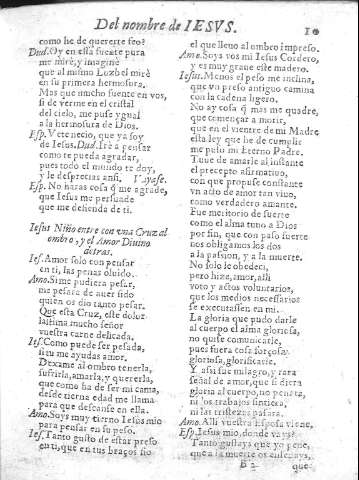 Del nombre de IESVS. 10
como he de quererte feo?
Dud. Oy en esta fuente pura
me mirè, y imaginè
que al mismo Luzbel mirè
en su primera hermosura.
Mas que mucho fuente en vos,
si de verme en el cristal
del cielo, me puse ygual
a la hermosura de Dios.
Esp. Vete necio, que ya soy
de Iesus. Dud. Irè a pensar
como te pueda agradar,
pues todo el mundo te doy,
y le desprecias assi. Vayase.
Esp. No haras cosa q̃ me agrade,
que Iesus me persuade
que me defienda de ti.
Iesus Niño entre con vna Cruz al
ombro, y el Amor Diuino
detras.
Ies. Amor solo con pensar
en ti, las penas oluido.
Amo. Si me pudiera pesar,
me pesara de auer sido
quien os dio tanto pesar.
Que esta Cruz, este dolor
lastima mucho señor
vuestra carne delicada.
Ies. Como puede ser pesada,
si tu me ayudas amor.
Dexame al ombro tenerla,
sufrirla, amarla, y quererla,
que como ha de ser mi cama,
desde tierna edad me llama
para que descanse en ella.
Amo. Soys muy tierno Iesus mio
para pensar en su peso.
Ies. Tanto gusto de estar preso
en ti, que en tus braços fio
el que lleuo al ombro impreso.
Amo. Soys vos mi Iesus Cordero,
y es muy graue este madero.
Iesus. Menos el peso me inclina,
que vn preso antiguo camina
con la cadena ligero.
No ay cosa q̃ mas me quadre,
que començar a morir,
que en el vientre de mi Madre
esta ley que he de cumplir
me puso mi Eterno Padre.
Tuue de amarle al instante
el precepto afirmatiuo,
con que propuse constante
vn acto de amor tan viuo,
como verdadero amante.
Fue meritorio de suerte
como el alma tuuo a Dios
por fin, que con paso fuerte
nos obligamos los dos
a la passion, y a la muerte.
No solo le obedeci,
pero hize, amor, alli
voto y actos voluntarios,
que los medios necessarios
se executassen en mi.
La gloria que pudo darle
al cuerpo el alma gloriosa,
no quise comunicarle,
pues fuera cosa forçosa,
gloriosa, glorificarle.
Y assi fue milagro, y rara
señal de amor, que si diera
gloria al cuerpo, no penara,
ni los trabajos sintiera,
ni las tristezas pasara.
Amo. Alli vuestra Esposa viene,
Esp. Iesus mio, donde vays?
Tanto gustays que yo pene,
que a la muerte os enseñays,
B 2 que